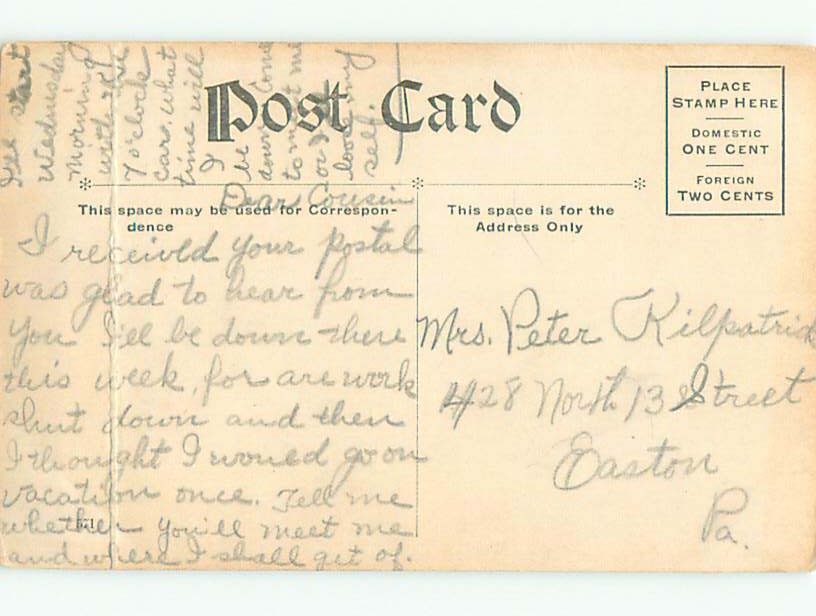 Post Card
PLACE
STAMP HERE
DOMESTIC
ONE CENT
FOREIGN
TWO CENTS
This space may be used for Correspon-
dence
This space is for the
Address Only
Dear Cousin
I received your postal
was glad to hear from
you I'll be down there
this week, for are work
shut down and then
I thought I would go on
vacation once. Tell me
whether you'll meet me
and where I shall get of.
I'll start
Wednesday
morning
with the
7 o'clock
cars, what
time will
I
be
down. Come
to meet me
love my
self.
571
Mrs. Peter Kilpatrick
428 North 13 Street
Easton
Pa.